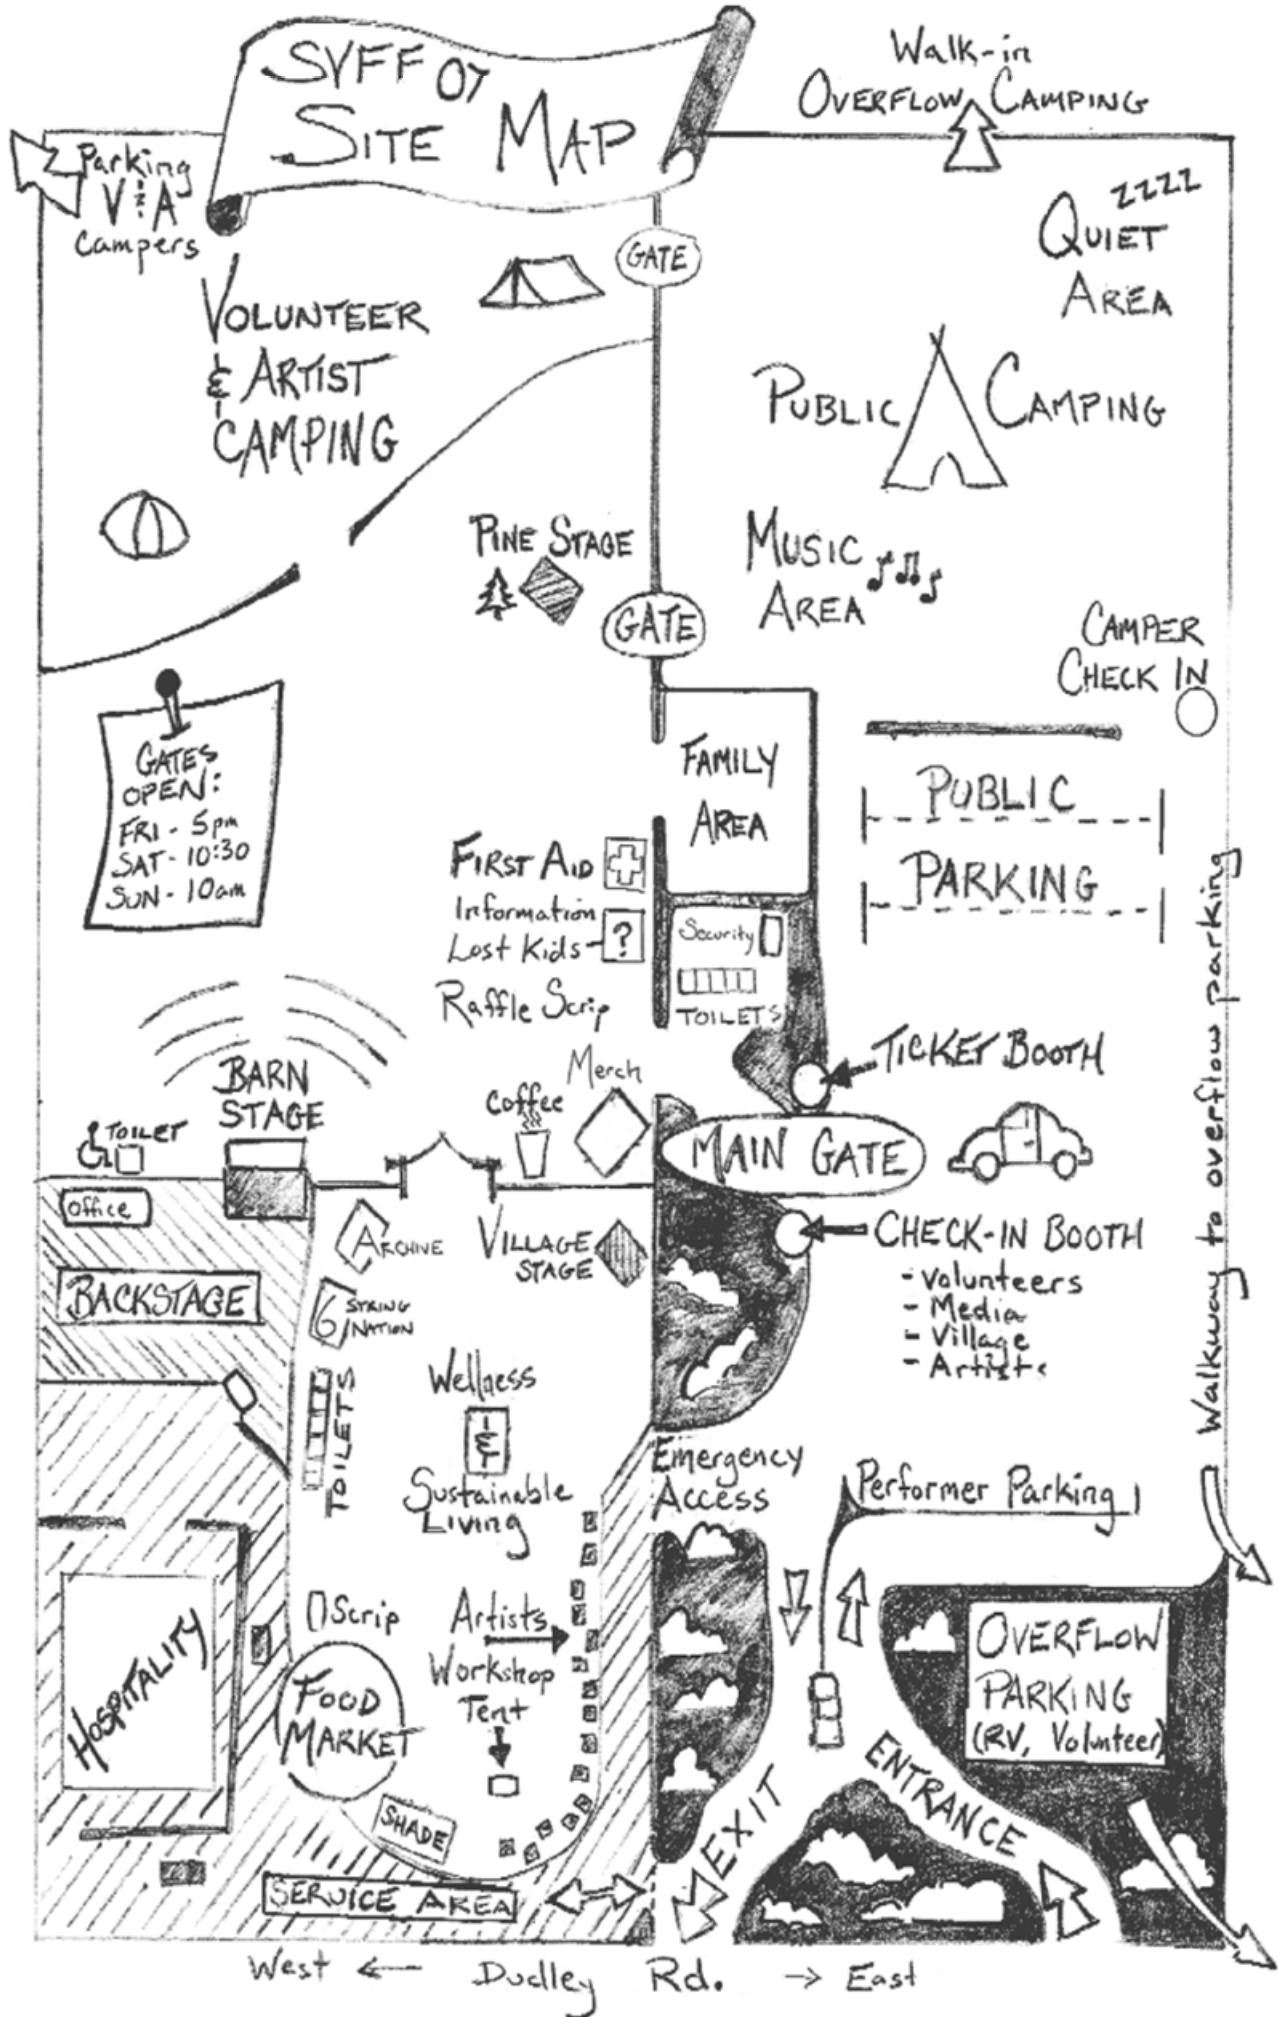 SVFF 07
SITE MAP
Walk-in
OVERFLOW CAMPING
Parking
V & A
Campers
ZZZZ
QUIET
AREA
GATE
VOLUNTEER
& ARTIST
CAMPING
PUBLIC CAMPING
PINE STAGE
MUSIC
AREA
GATE
CAMPER
CHECK IN
GATES
OPEN:
FRI - 5pm
SAT - 10:30
SUN - 10am
FAMILY
AREA
PUBLIC
PARKING
FIRST AID
Information
Lost Kids - ?
Raffle Scrip
Security
TOILETS
Walkway to overflow parking
TICKET BOOTH
BARN
STAGE
Coffee
Merch
TOILET
MAIN GATE
Office
ARCHIVE
VILLAGE
STAGE
CHECK-IN BOOTH
- Volunteers
- Media
- Village
- Artists
BACKSTAGE
6 STRING
NATION
TOILETS
Wellness
&
Sustainable
Living
Emergency
Access
Performer Parking
HOSPITALITY
Scrip
Artists
Workshop
Tent
FOOD
MARKET
SHADE
SERVICE AREA
OVERFLOW
PARKING
(RV, Volunteer)
EXIT
ENTRANCE
West ← Dudley Rd. → East